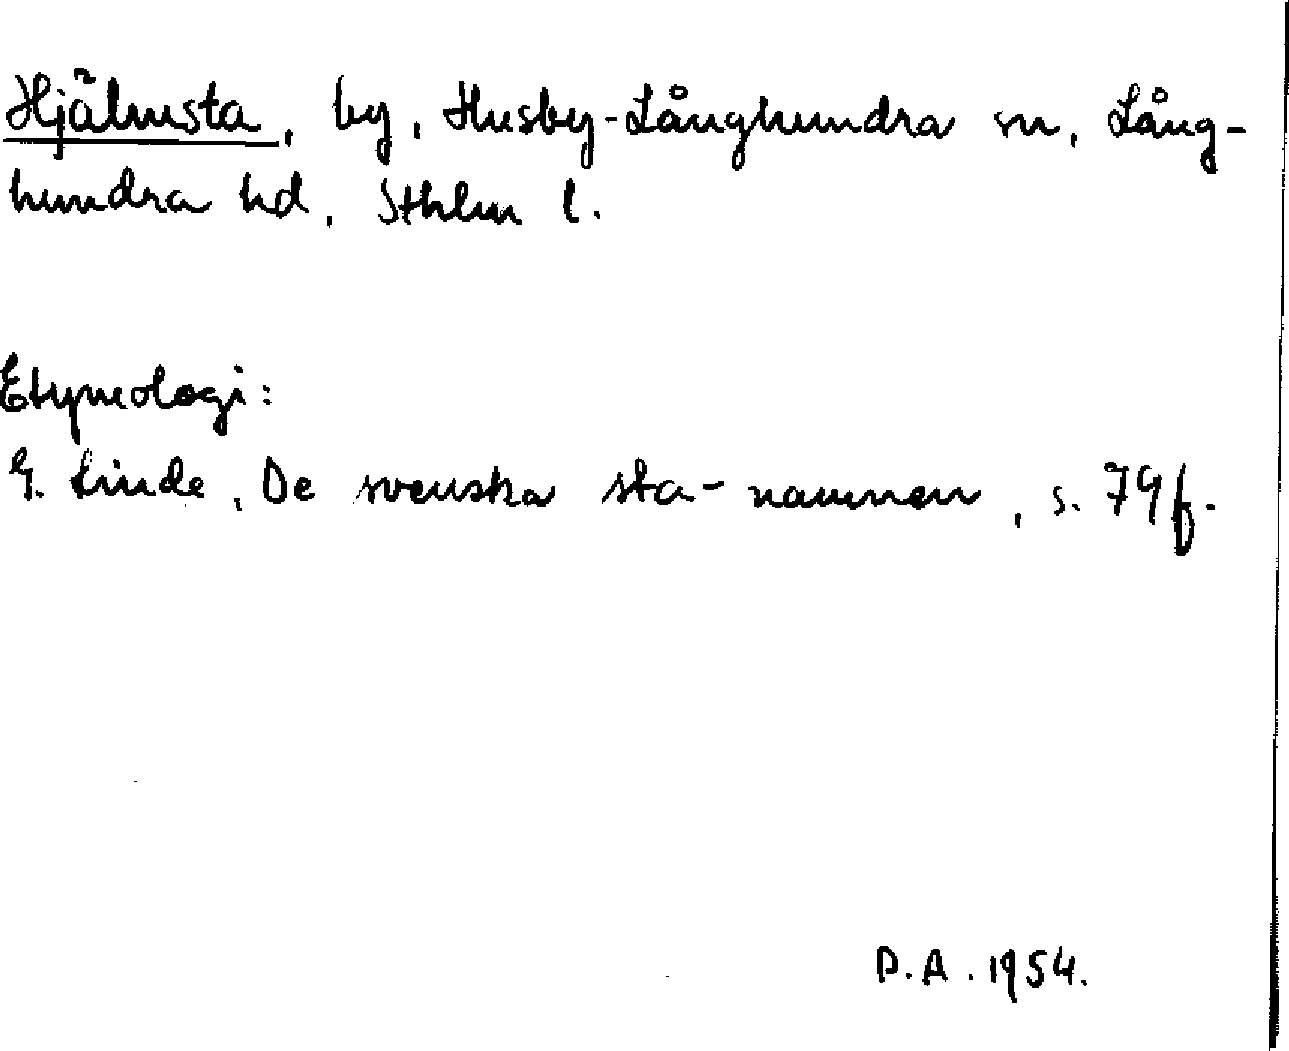 Hjälmsta, by, Husby-Långhundra sn, Lång-
hundra hd, Sthlm l.
Etymologi:
G. Linde, De svenska sta-namnen, s. 79 f.
D.A. 1954.